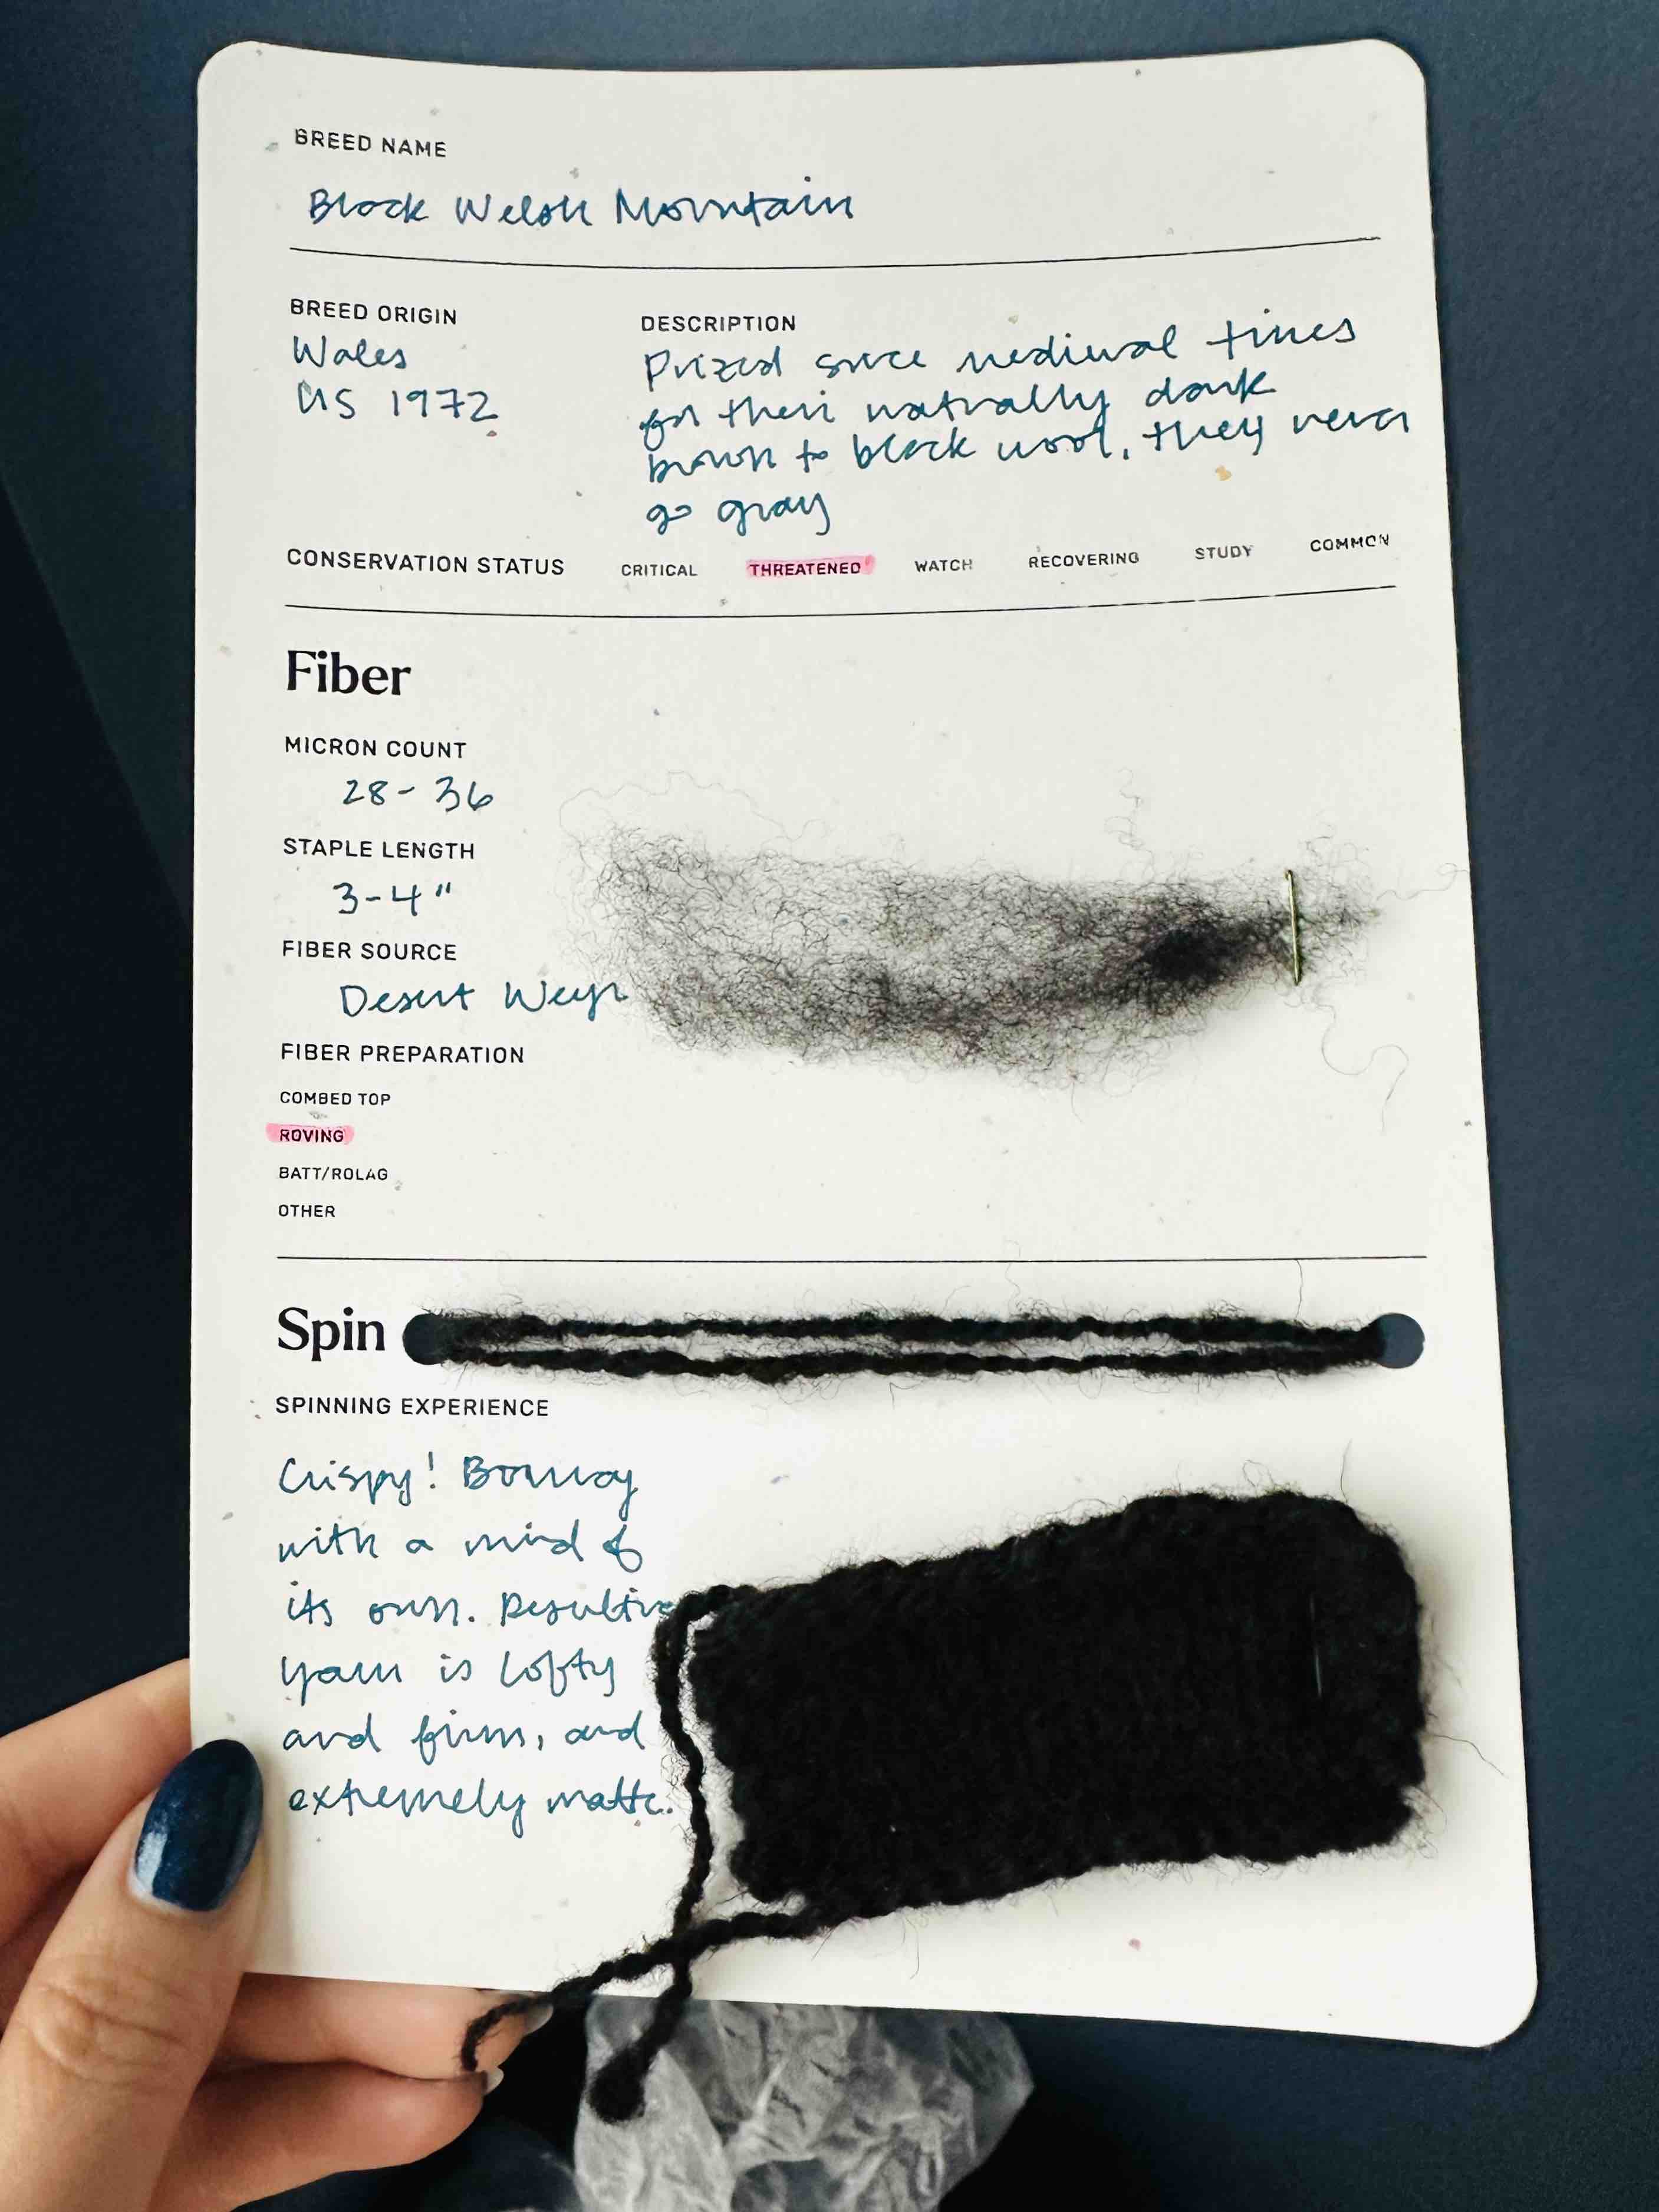 BREED NAME
Black Welsh Mountain
BREED ORIGIN
Wales
US 1972
DESCRIPTION
Prized since medieval times
for their naturally dark
brown to black wool, they never
go gray
CONSERVATION STATUS CRITICAL THREATENED WATCH RECOVERING STUDY COMMON
Fiber
MICRON COUNT
28-36
STAPLE LENGTH
3-4"
FIBER SOURCE
Desert Weyr
FIBER PREPARATION
COMBED TOP
ROVING
BATT/ROLAG
OTHER
Spin
SPINNING EXPERIENCE
Crispy! Bouncy
with a mind of
its own. Resulting
yarn is lofty
and firm, and
extremely matte.